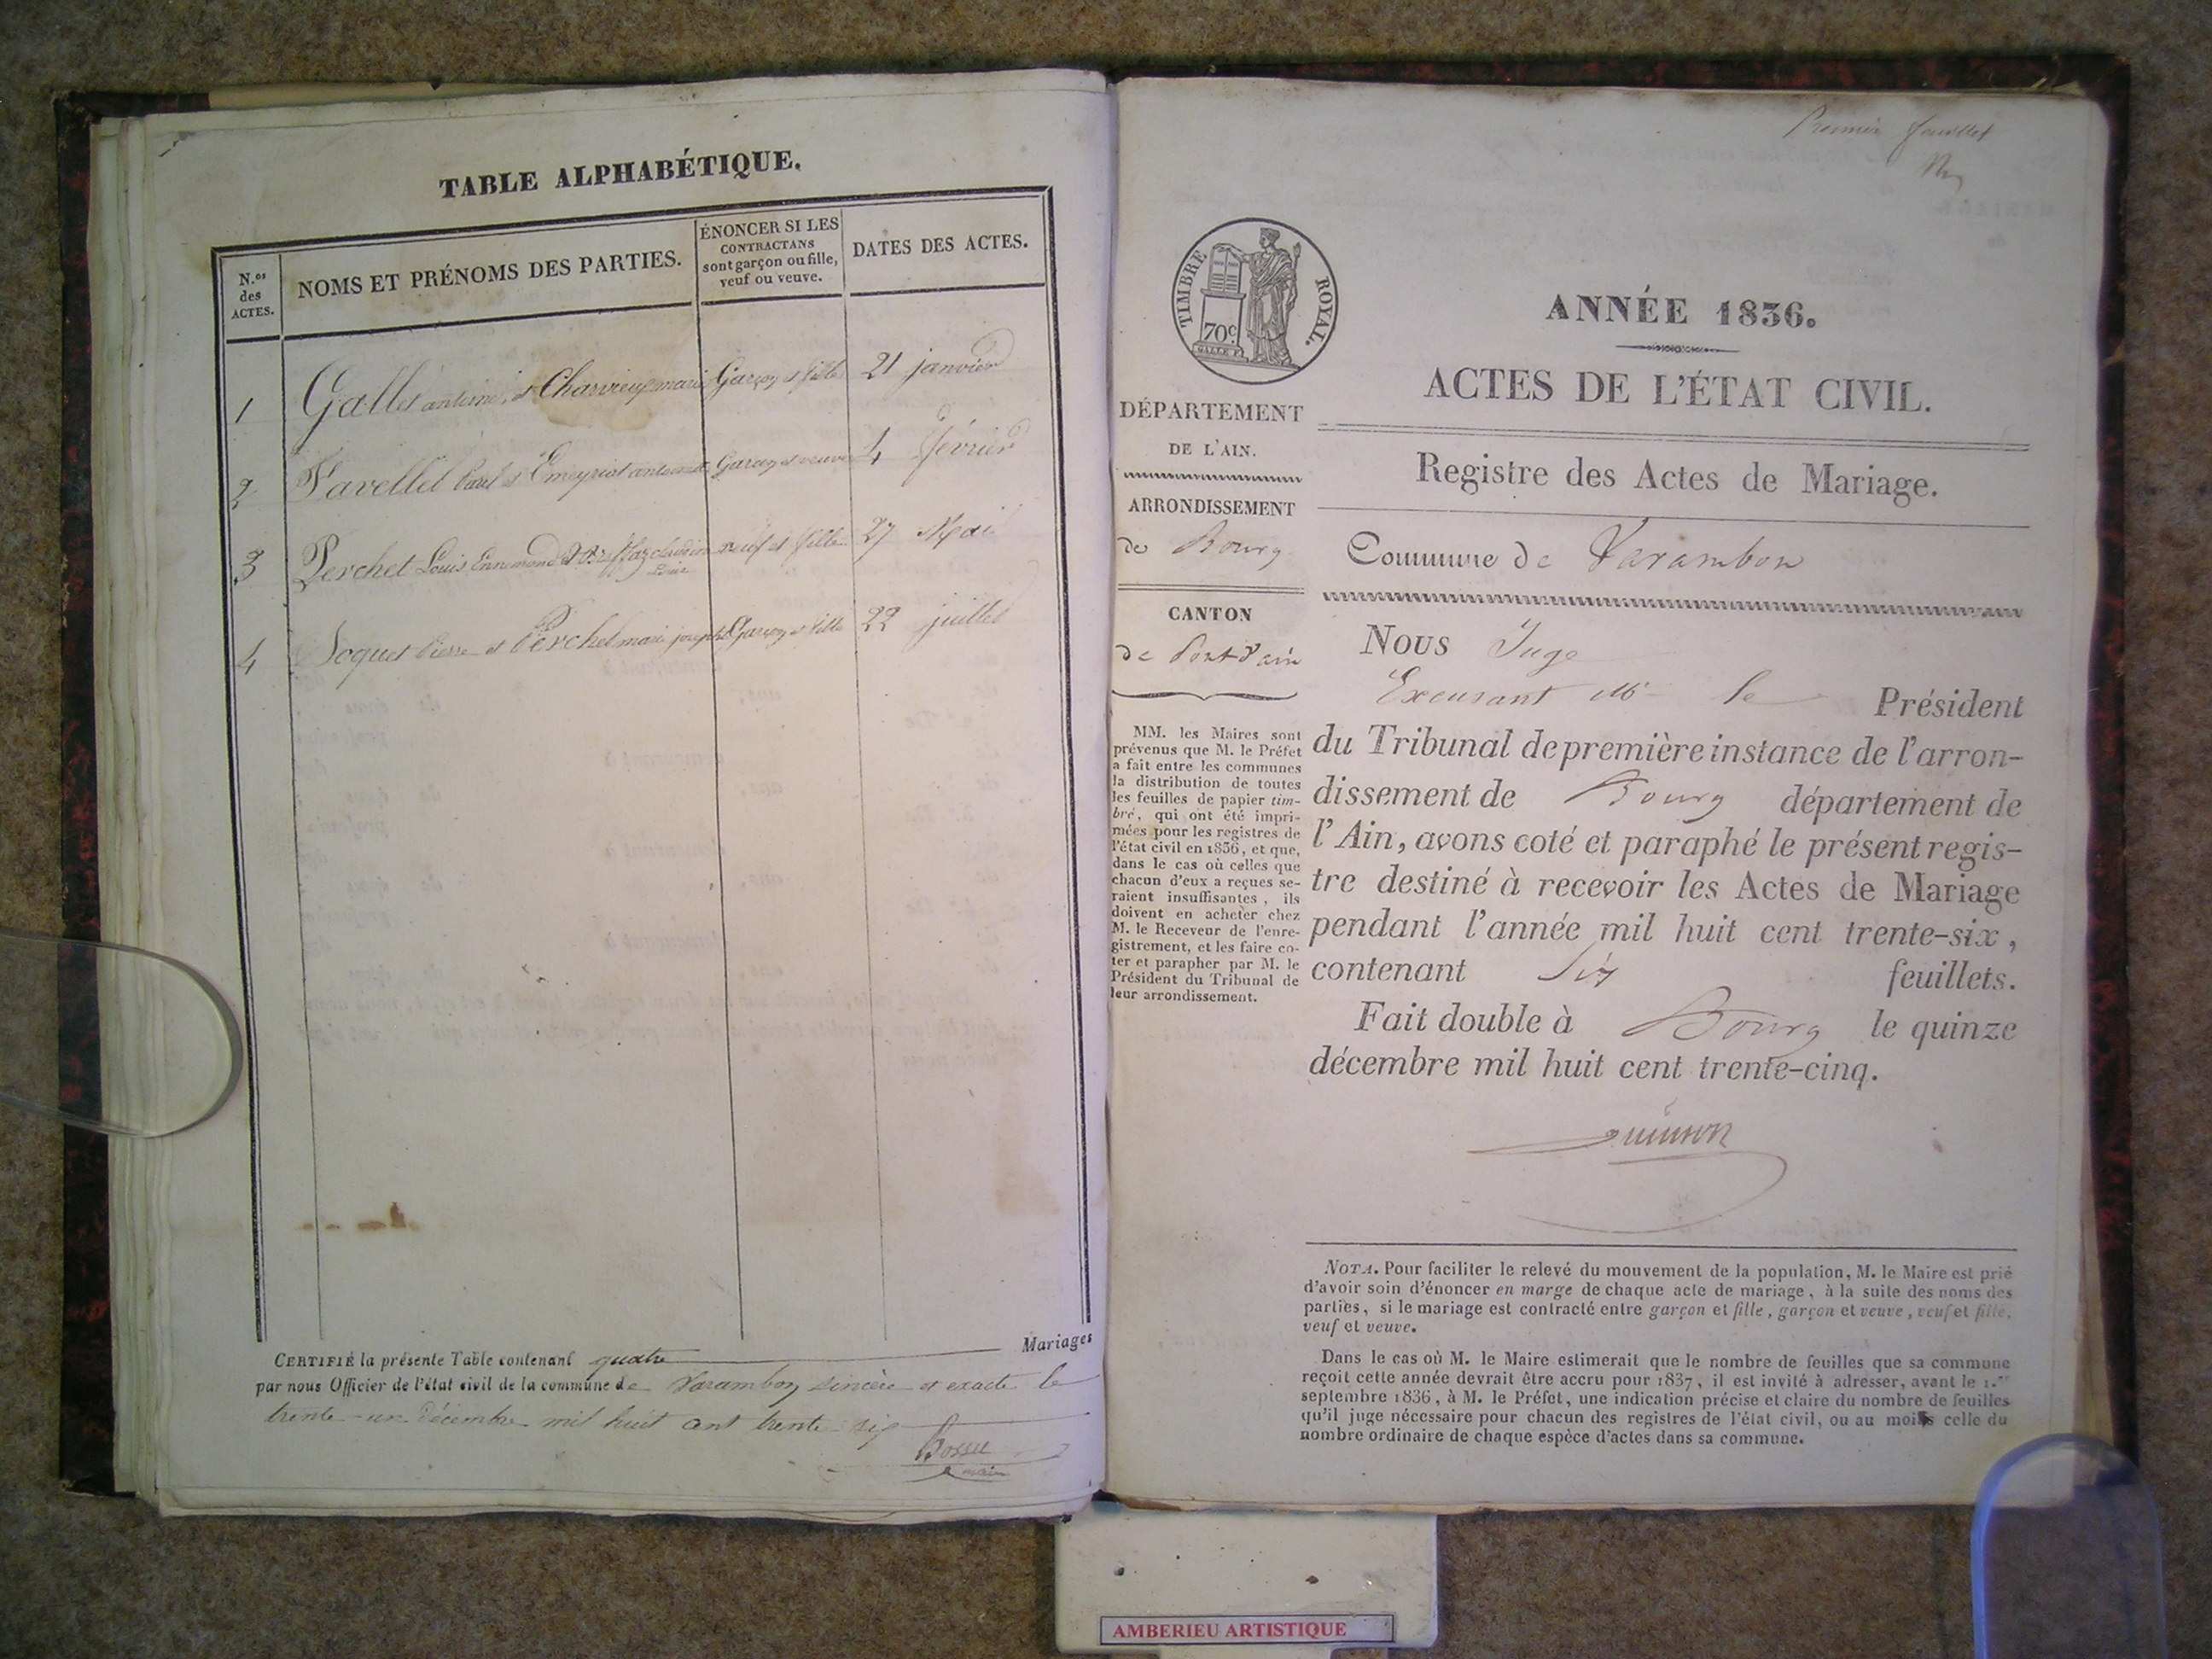 TABLE ALPHABÉTIQUE.
N.os des ACTES.
NOMS ET PRÉNOMS DES PARTIES.
ÉNONCER SI LES
CONTRACTANS
sont garçon ou fille,
veuf ou veuve.
DATES DES ACTES.
1 Gallet antoine, et Charvieux marie Garçon et fille 21 janvier
2 Favellet Paul et Emeyriat antoinette Garçon et veuve 4 février
3 Perchet Louis Ennemond veuf et fille 27 Mai
4 Soquet Pierre et Perchet marie josephe Garçon et fille 22 juillet
CERTIFIÉ la présente Table contenant quatre Mariages
par nous Officier de l'état civil de la commune de Varambon sincère et exacte le
trente-un Décembre mil huit cent trente-six
Bossu
maire
Premier feuillet
TIMBRE ROYAL.
70c
ANNÉE 1836.
ACTES DE L'ÉTAT CIVIL.
Registre des Actes de Mariage.
Commune de Varambon
DÉPARTEMENT
DE L'AIN.
ARRONDISSEMENT
de Bourg
CANTON
de Pont d'ain
MM. les Maires sont
prévenus que M. le Préfet
a fait entre les communes
la distribution de toutes
les feuilles de papier tim-
bré, qui ont été impri-
mées pour les registres de
l'état civil en 1836, et que,
dans le cas où celles que
chacun d'eux a reçues se-
raient insuffisantes, ils
doivent en acheter chez
M. le Receveur de l'enre-
gistrement, et les faire co-
ter et parapher par M. le
Président du Tribunal de
leur arrondissement.
Nous Juge
Excusant Mr le Président
du Tribunal de première instance de l'arron-
dissement de Bourg département de
l'Ain, avons coté et paraphé le présent regis-
tre destiné à recevoir les Actes de Mariage
pendant l'année mil huit cent trente-six,
contenant Six feuillets.
Fait double à Bourg le quinze
décembre mil huit cent trente-cinq.
NOTA. Pour faciliter le relevé du mouvement de la population, M. le Maire est prié
d'avoir soin d'énoncer en marge de chaque acte de mariage, à la suite des noms des
parties, si le mariage est contracté entre garçon et fille, garçon et veuve, veuf et fille,
veuf et veuve.
Dans le cas où M. le Maire estimerait que le nombre de feuilles que sa commune
reçoit cette année devrait être accru pour 1837, il est invité à adresser, avant le 1.er
septembre 1836, à M. le Préfet, une indication précise et claire du nombre de feuilles
qu'il juge nécessaire pour chacun des registres de l'état civil, ou au moins celle du
nombre ordinaire de chaque espèce d'actes dans sa commune.
AMBERIEU ARTISTIQUE